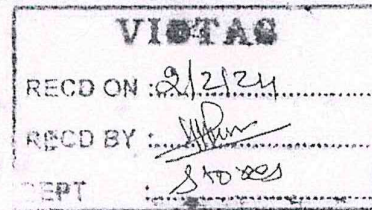 VISTAG
RECD ON : 2/2/24
RECD BY :
DEPT : Stores